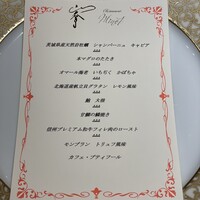 茨城県産天然岩牡蠣 シャンパーニュ キャビア
本マグロのたたき
オマール海老 いちじく かぼちゃ
北海道産帆立貝グラタン レモン風味
鮑 大根
甘鯛の鱗焼き
信州プレミアム和牛フィレ肉のロースト
モンブラン トリュフ風味
カフェ・プティフール